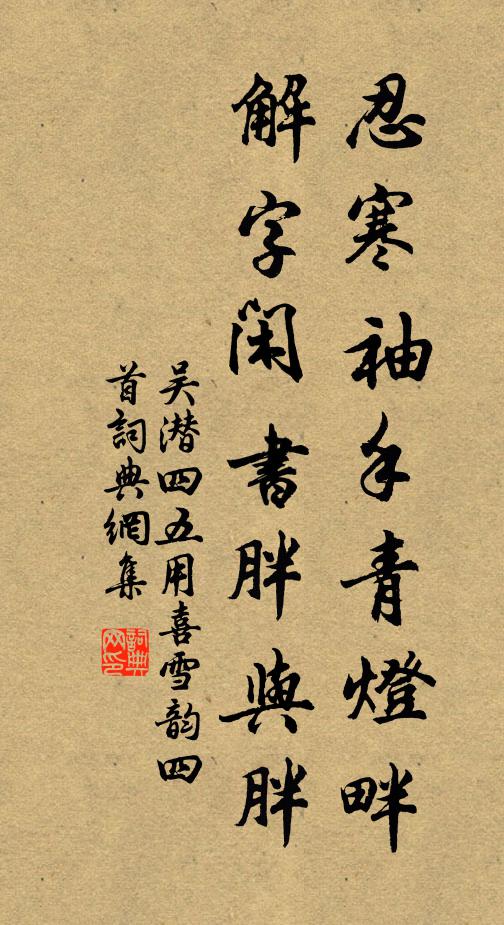 忍寒袖手青燈畔
解字閑書胖與胖
吴潜四五用喜雪韵四
首詞典網集
詞典
网印